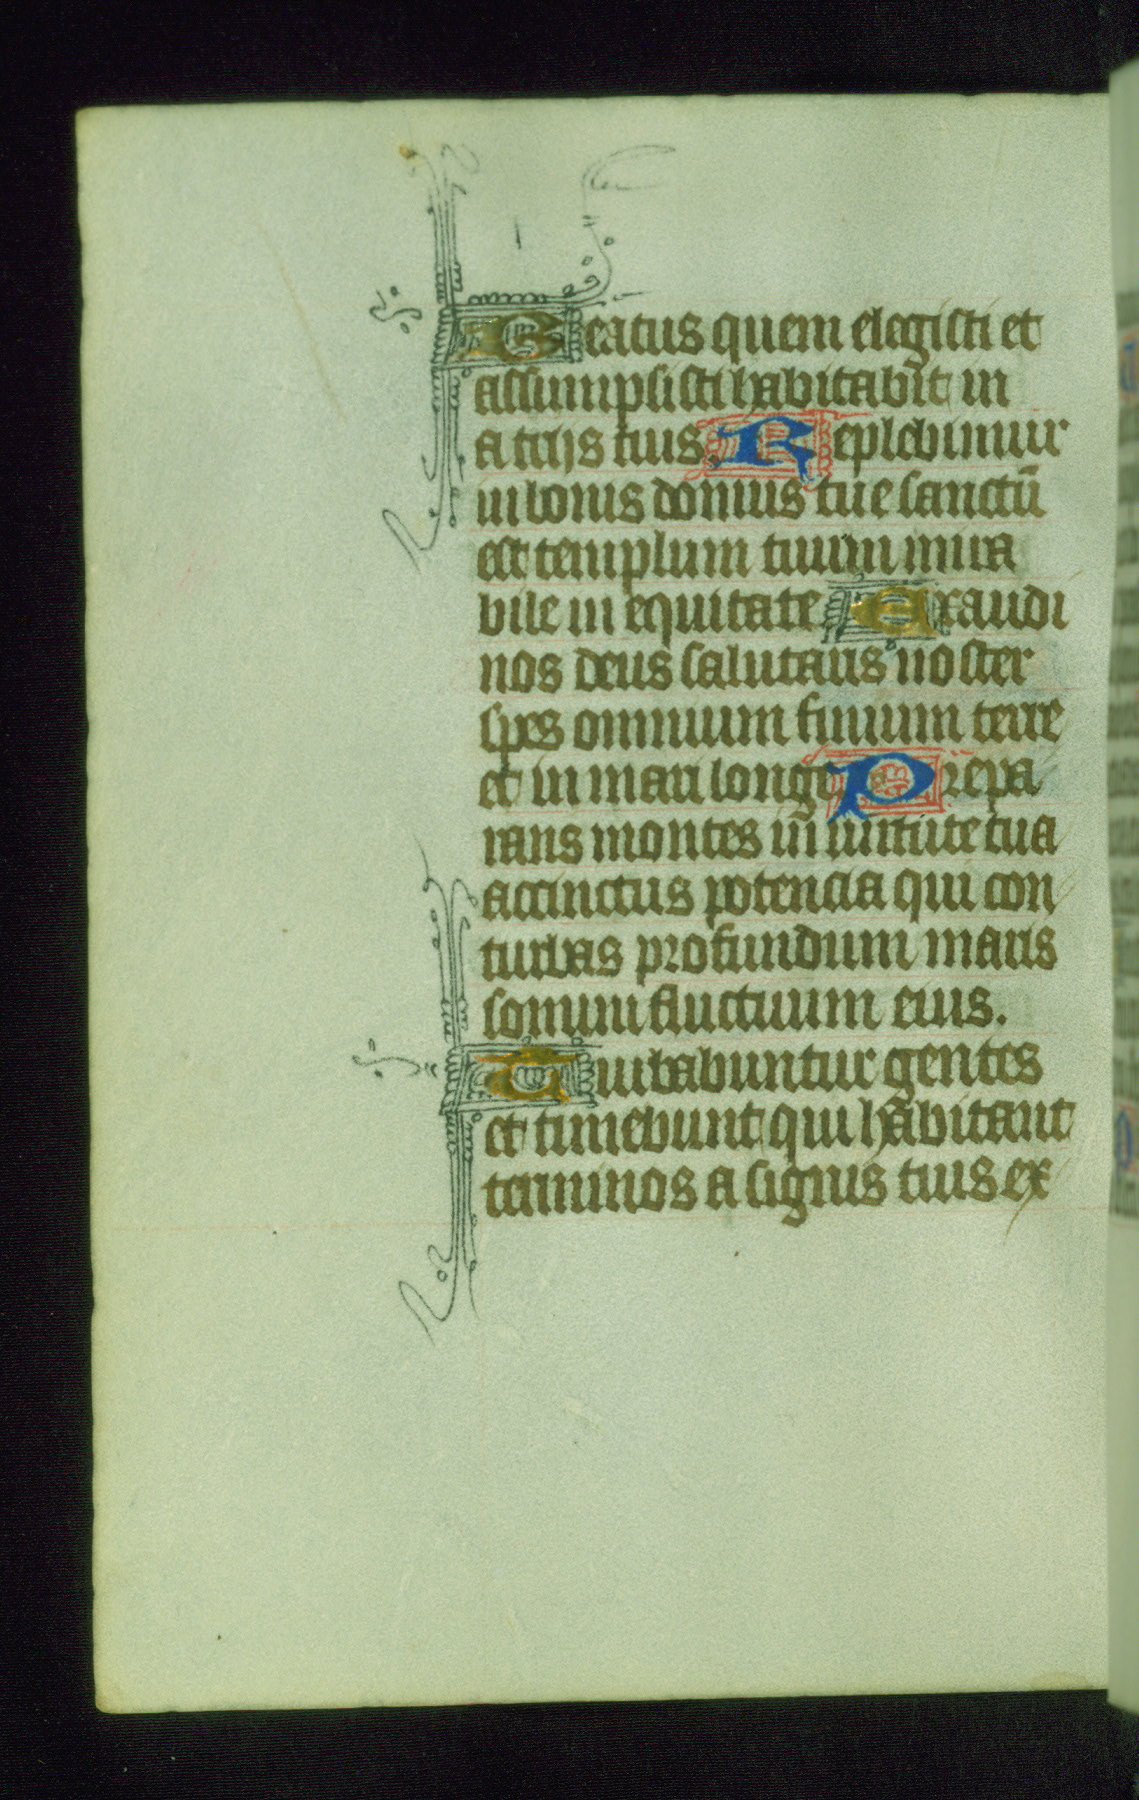 Beatus quem elegisti et
assumpsisti habitabit in
atrijs tuis. Replebimur
in bonis domus tue sanctū
est templum tuum mira
bile in equitate Exaudi
nos deus salutaris noster
spes omnium finium terre
et in mari longe Prepa
rans montes in uirtute tua
accinctus potencia qui con
turbas profundum maris
sonum fluctuum eius.
Turbabuntur gentes
et timebunt qui habitant
terminos a signis tuis ex